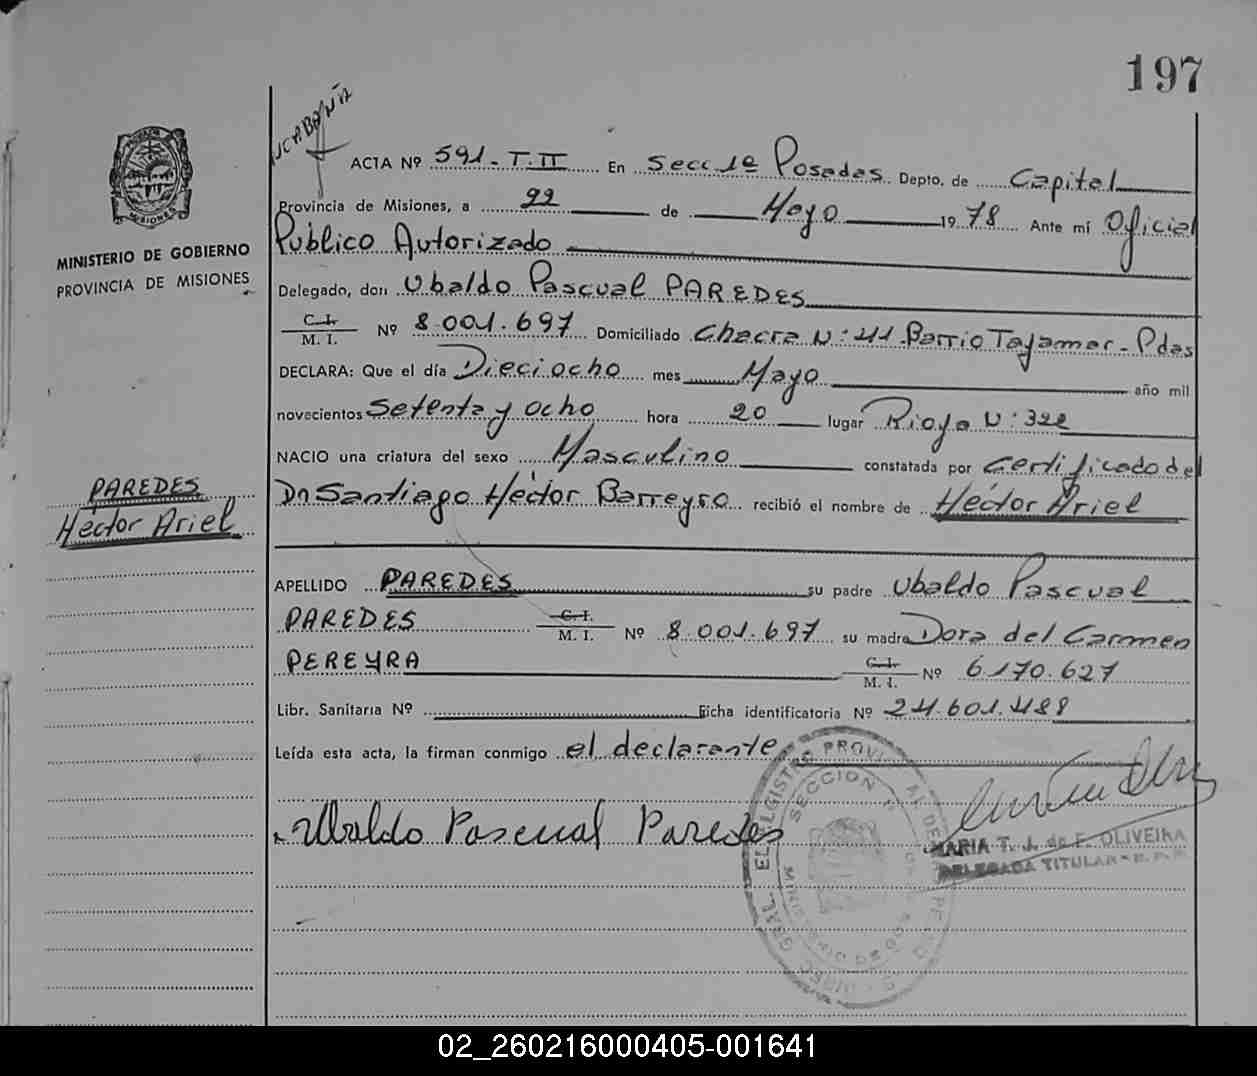 197
ACTA Nº 591-T.II En Secc. 1º Posadas Depto. de Capital
Provincia de Misiones, a 22 de Mayo 1978 Ante mí Oficial
Público Autorizado
MINISTERIO DE GOBIERNO
PROVINCIA DE MISIONES
Delegado, don Ubaldo Pascual PAREDES
C. I.
M. I. Nº 8.001.697 Domiciliado Chacra N: 41 Barrio Tajamar - Pdas
DECLARA: Que el día Dieciocho mes Mayo año mil
novecientos setenta y ocho hora 20 lugar Rioja N: 322
NACIO una criatura del sexo Masculino constatada por Certificado del
Dr Santiago Héctor Barreyro recibió el nombre de Héctor Ariel
PAREDES
Héctor Ariel
APELLIDO PAREDES su padre Ubaldo Pascual
PAREDES C. I.
M. I. Nº 8.001.697 su madre Dora del Carmen
PEREYRA C. I.
M. I. Nº 6170.627
Libr. Sanitaria Nº Ficha identificatoria Nº 24.601.488
Leída esta acta, la firman conmigo el declarante
Ubaldo Pascual Paredes
SECCION 1ª
MARIA T. J. de F. OLIVEIRA
DELEGADA TITULAR
MISIONES
02_260216000405-001641